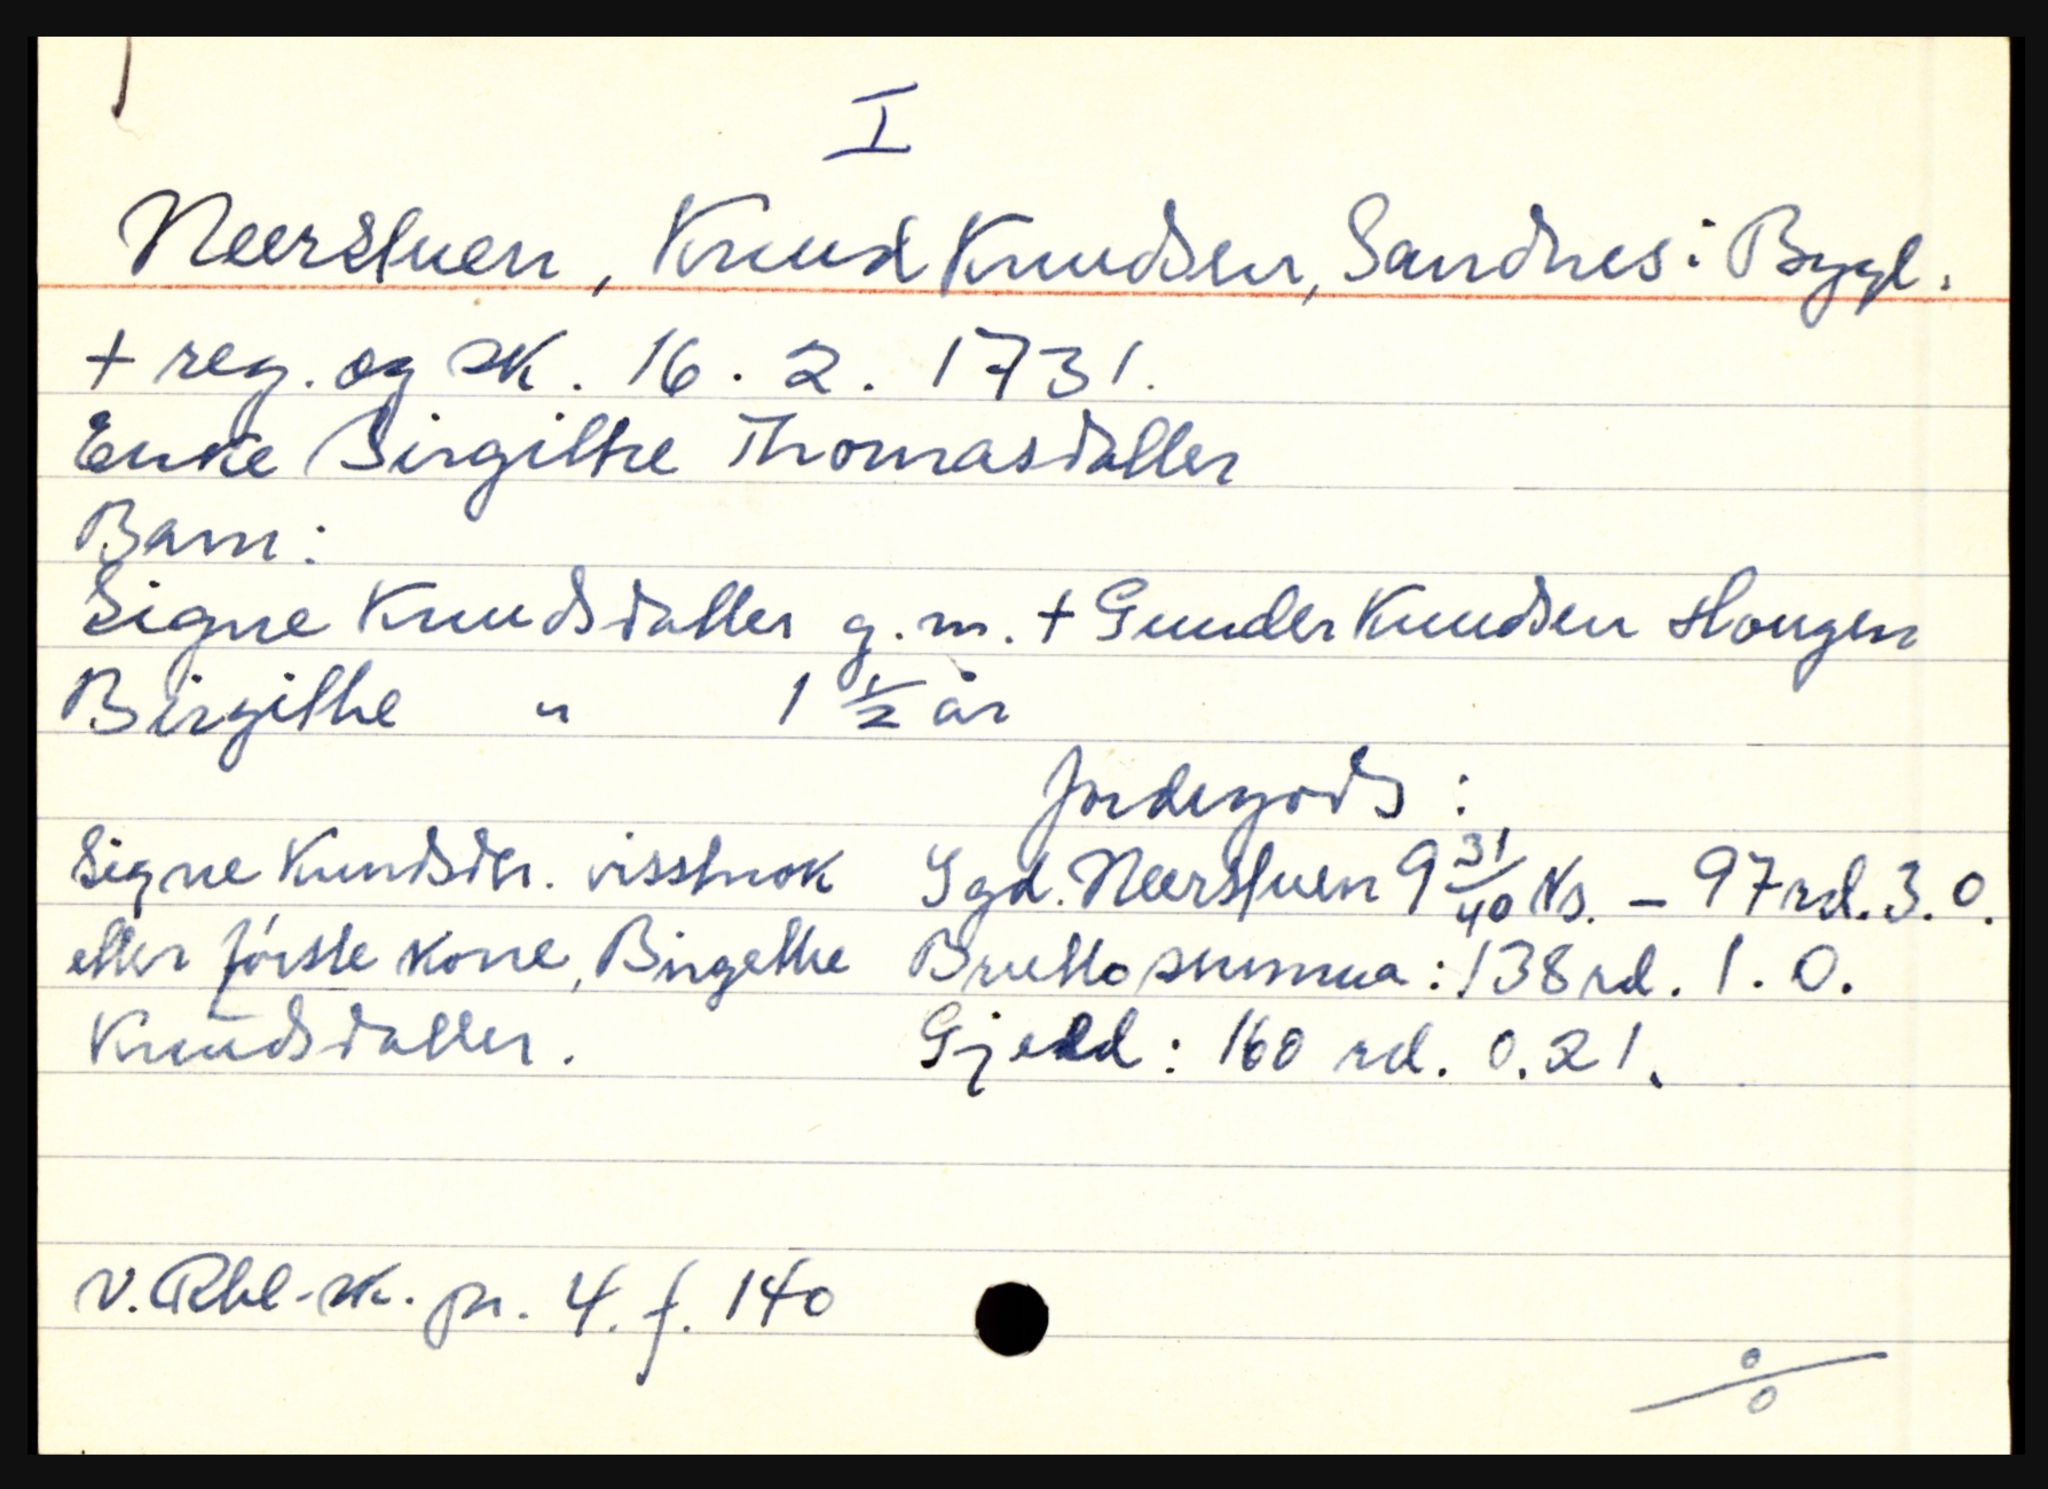 I
Neerstuen, Knud Knudsen, Sandnes i Bygl.
+ reg. og sk. 16. 2. 1731.
Enke Birgithe Thomasdatter
Barn:
Signe Knudsdatter g. m. + Gunder Knudsen Hougen
Birgithe " 1 1/2 år
Jordegods:
Signe Knudsdtr. visstnok
etter første kone, Birgethe
Knudsdatter.
I gd. Neerstuen 9 31/40 ks. - 97 rd. 3. 0.
Brutto summa: 138 rd. 1. 0.
Gjeld: 160 rd. 0. 21.
V. Rbl-sk. pr. 4. f. 140